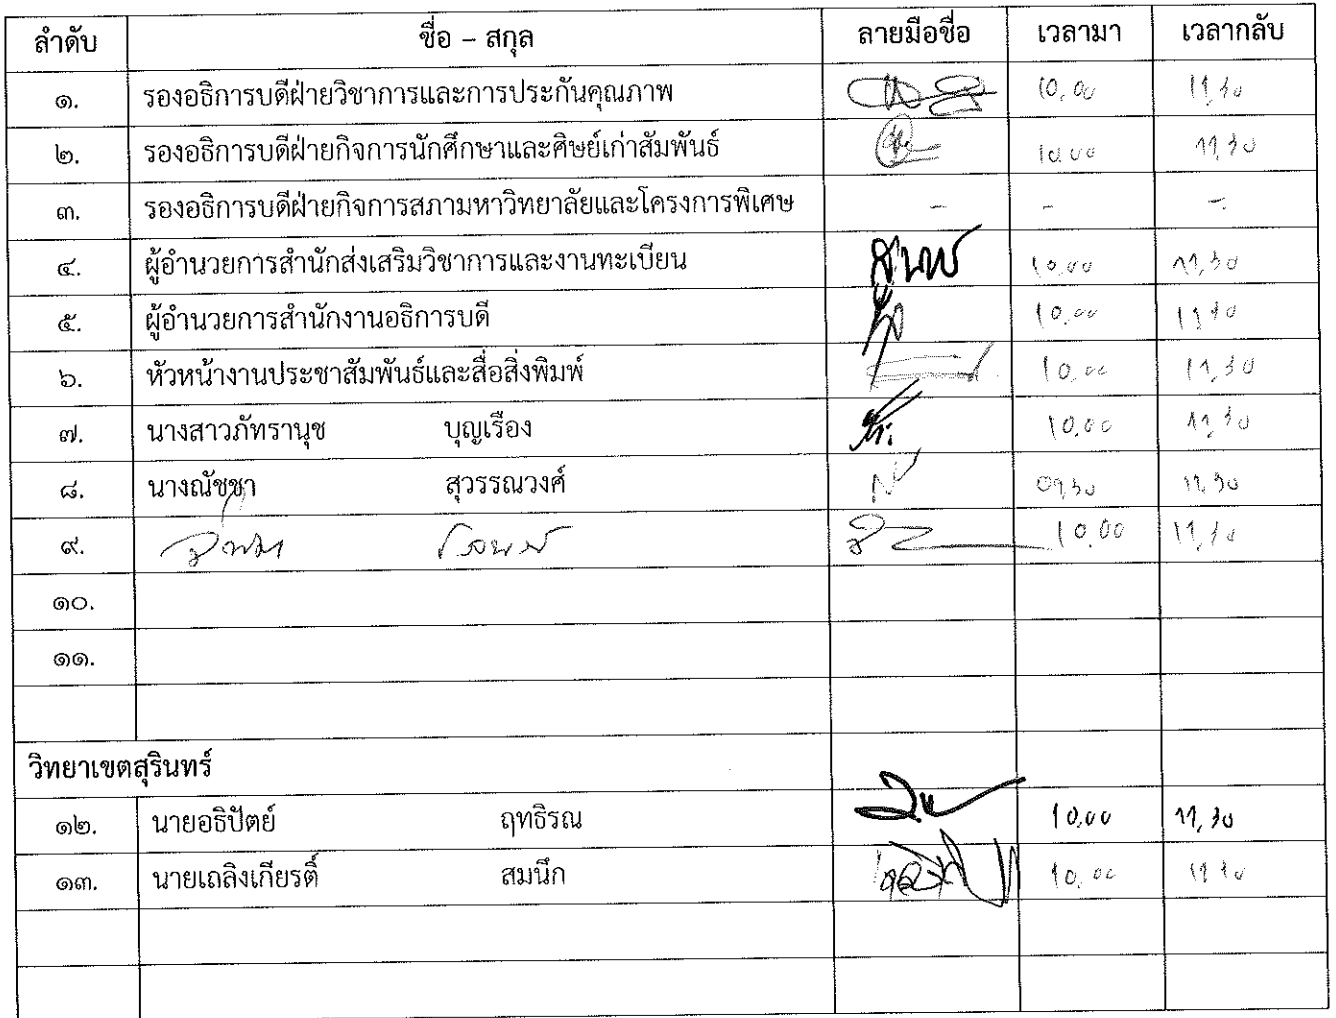 ลำดับ ชื่อ – สกุล ลายมือชื่อ เวลามา เวลากลับ
๑. รองอธิการบดีฝ่ายวิชาการและการประกันคุณภาพ 10.00 11,30
๒. รองอธิการบดีฝ่ายกิจการนักศึกษาและศิษย์เก่าสัมพันธ์ 10.00 11,30
๓. รองอธิการบดีฝ่ายกิจการสภามหาวิทยาลัยและโครงการพิเศษ – – –.
๔. ผู้อำนวยการสำนักส่งเสริมวิชาการและงานทะเบียน 10.00 11,30
๕. ผู้อำนวยการสำนักงานอธิการบดี 10.00 1130
๖. หัวหน้างานประชาสัมพันธ์และสื่อสิ่งพิมพ์ 10.00 11,30
๗. นางสาวภัทรานุช บุญเรือง 10.00 11,30
๘. นางณัชชา สุวรรณวงศ์ 09,30 11,30
๙. 10.00 11,30
๑๐.
๑๑.
วิทยาเขตสุรินทร์
๑๒. นายอธิปัตย์ ฤทธิรณ 10.00 11,30
๑๓. นายเถลิงเกียรติ์ สมนึก 10.00 11 30